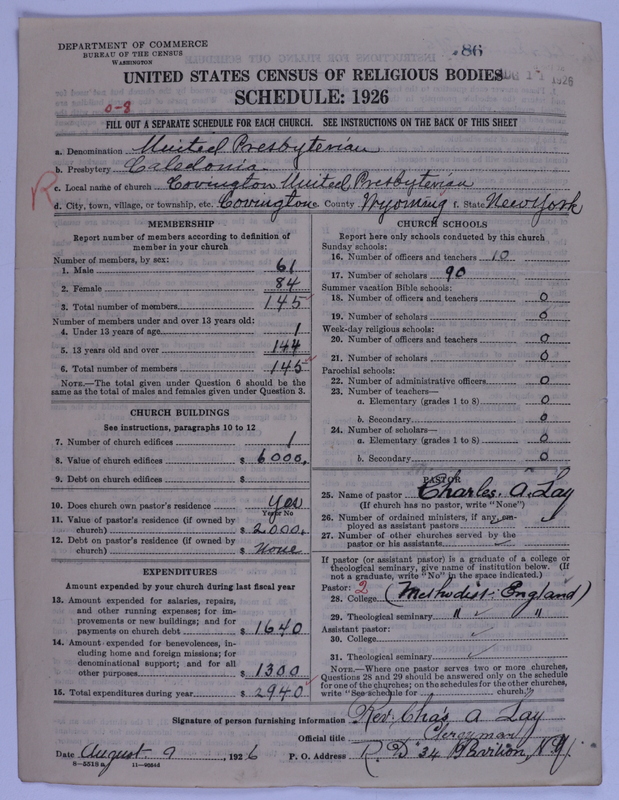 DEPARTMENT OF COMMERCE
BUREAU OF THE CENSUS
WASHINGTON
86
1926
UNITED STATES CENSUS OF RELIGIOUS BODIES
SCHEDULE: 1926
0-8
FILL OUT A SEPARATE SCHEDULE FOR EACH CHURCH. SEE INSTRUCTIONS ON THE BACK OF THIS SHEET
a. Denomination United Presbyterian
b. Presbytery Caledonia
R
c. Local name of church Covington United Presbyterian
d. City, town, village, or township, etc. Covington e. County Wyoming f. State New York
MEMBERSHIP
Report number of members according to definition of member in your church
Number of members, by sex:
1. Male 61
2. Female 84
3. Total number of members 145
Number of members under and over 13 years old:
4. Under 13 years of age 1
5. 13 years old and over 144
6. Total number of members 145
NOTE.—The total given under Question 6 should be the
same as the total of males and females given under Question 3.
CHURCH BUILDINGS
See instructions, paragraphs 10 to 12
7. Number of church edifices 1
8. Value of church edifices $ 6000.
9. Debt on church edifices $
10. Does church own pastor's residence Yes
Yes or No
11. Value of pastor's residence (if owned by
church) $ 2000.
12. Debt on pastor's residence (if owned by
church) $ None
EXPENDITURES
Amount expended by your church during last fiscal year
13. Amount expended for salaries, repairs,
and other running expenses; for im-
provements or new buildings; and for
payments on church debt $ 1640
14. Amount expended for benevolences, in-
cluding home and foreign missions; for
denominational support; and for all
other purposes $ 1300
15. Total expenditures during year $ 2940
CHURCH SCHOOLS
Report here only schools conducted by this church
Sunday schools:
16. Number of officers and teachers 10
17. Number of scholars 90
Summer vacation Bible schools:
18. Number of officers and teachers 0
19. Number of scholars 0
Week-day religious schools:
20. Number of officers and teachers 0
21. Number of scholars 0
Parochial schools:
22. Number of administrative officers 0
23. Number of teachers—
a. Elementary (grades 1 to 8) 0
b. Secondary 0
24. Number of scholars—
a. Elementary (grades 1 to 8) 0
b. Secondary 0
PASTOR
25. Name of pastor Charles. A. Lay
(If church has no pastor, write "None")
26. Number of ordained ministers, if any, em-
ployed as assistant pastors
27. Number of other churches served by the
pastor or his assistants
If pastor (or assistant pastor) is a graduate of a college or
theological seminary, give name of institution below. (If
not a graduate, write "No" in the space indicated.)
Pastor: 2
28. College (Methodist: England)
29. Theological seminary " "
Assistant pastor:
30. College
31. Theological seminary
NOTE.—Where one pastor serves two or more churches,
Questions 28 and 29 should be answered only on the schedule
for one of the churches; on the schedules for the other churches,
write "See schedule for church."
Signature of person furnishing information Rev. Chas A Lay
Official title Clergyman
Date August 9 1926 P. O. Address R. D 34 Pavilion, N.Y.
8-5518a 11-9054a